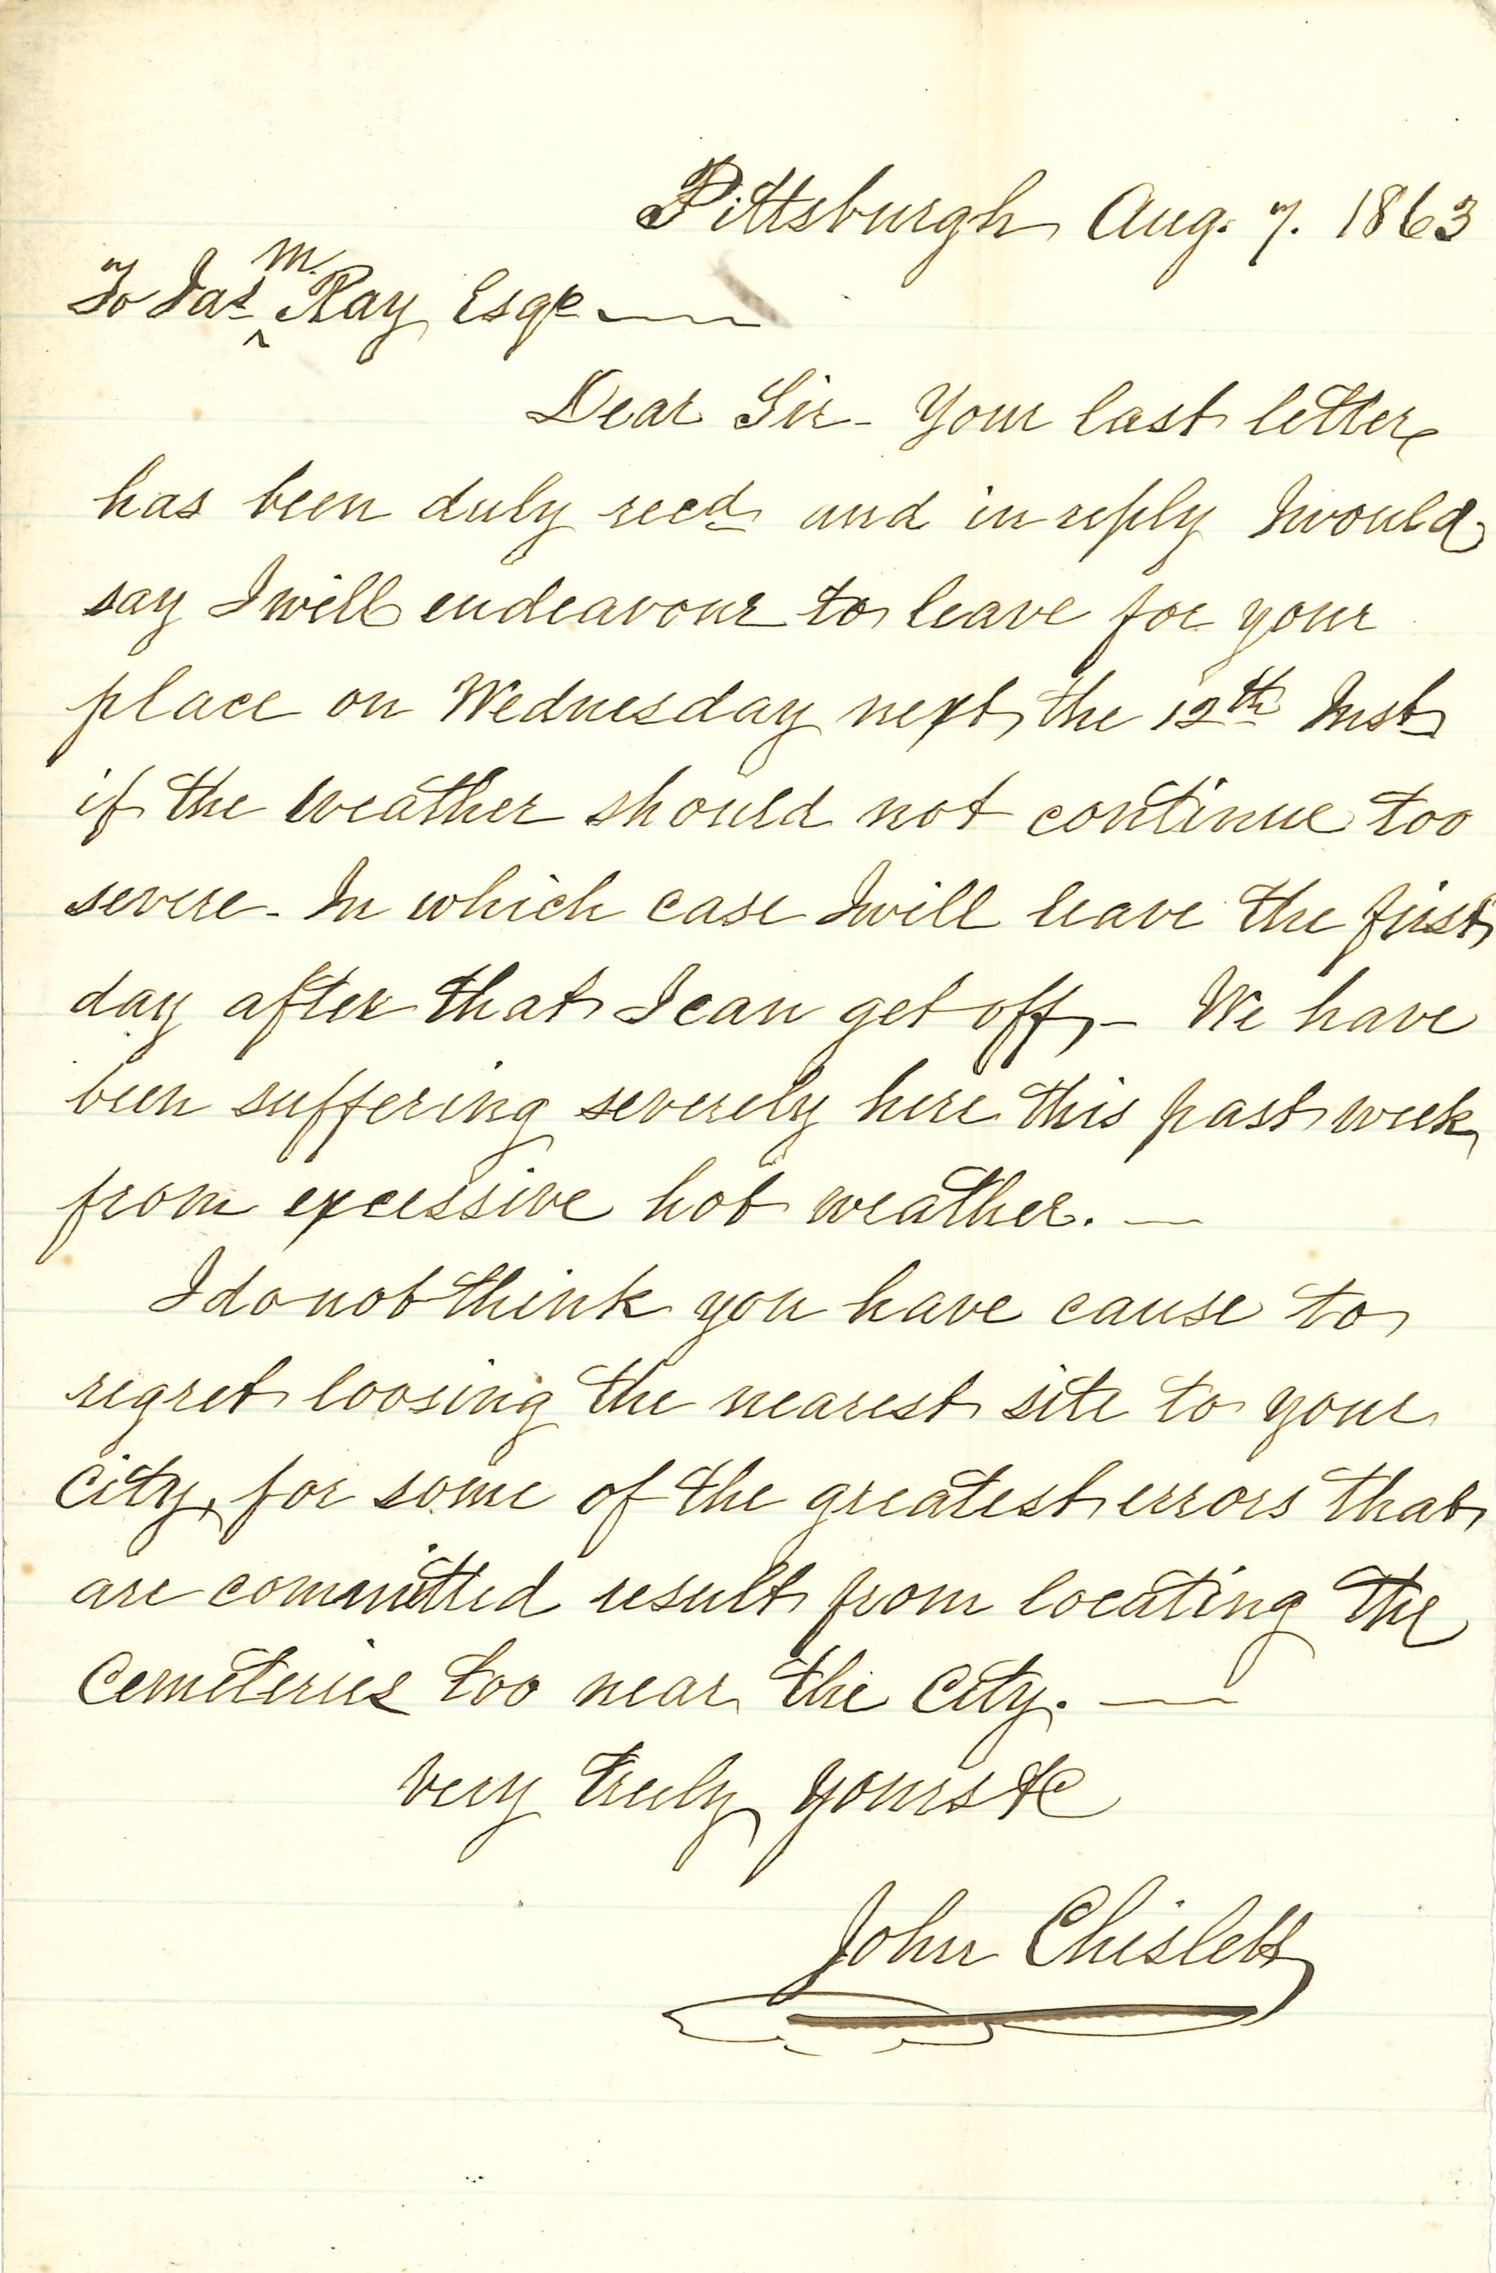 Pittsburgh Aug. 7. 1863
To Jas M. Ray Esqr
Dear Sir - Your last letter
has been duly recd and in reply I would
say I will endeavour to leave for your
place on Wednesday next the 12th Inst
if the weather should not continue too
severe - In which case I will leave the first
day after that I can get off, - We have
been suffering severely here this past week
from excessive hot weather. —
I do not think you have cause to
regret loosing the nearest site to your
City, for some of the greatest errors that
are committed result from locating the
Cemeteries too near the City. —
Very truly yours &c
John Chislett